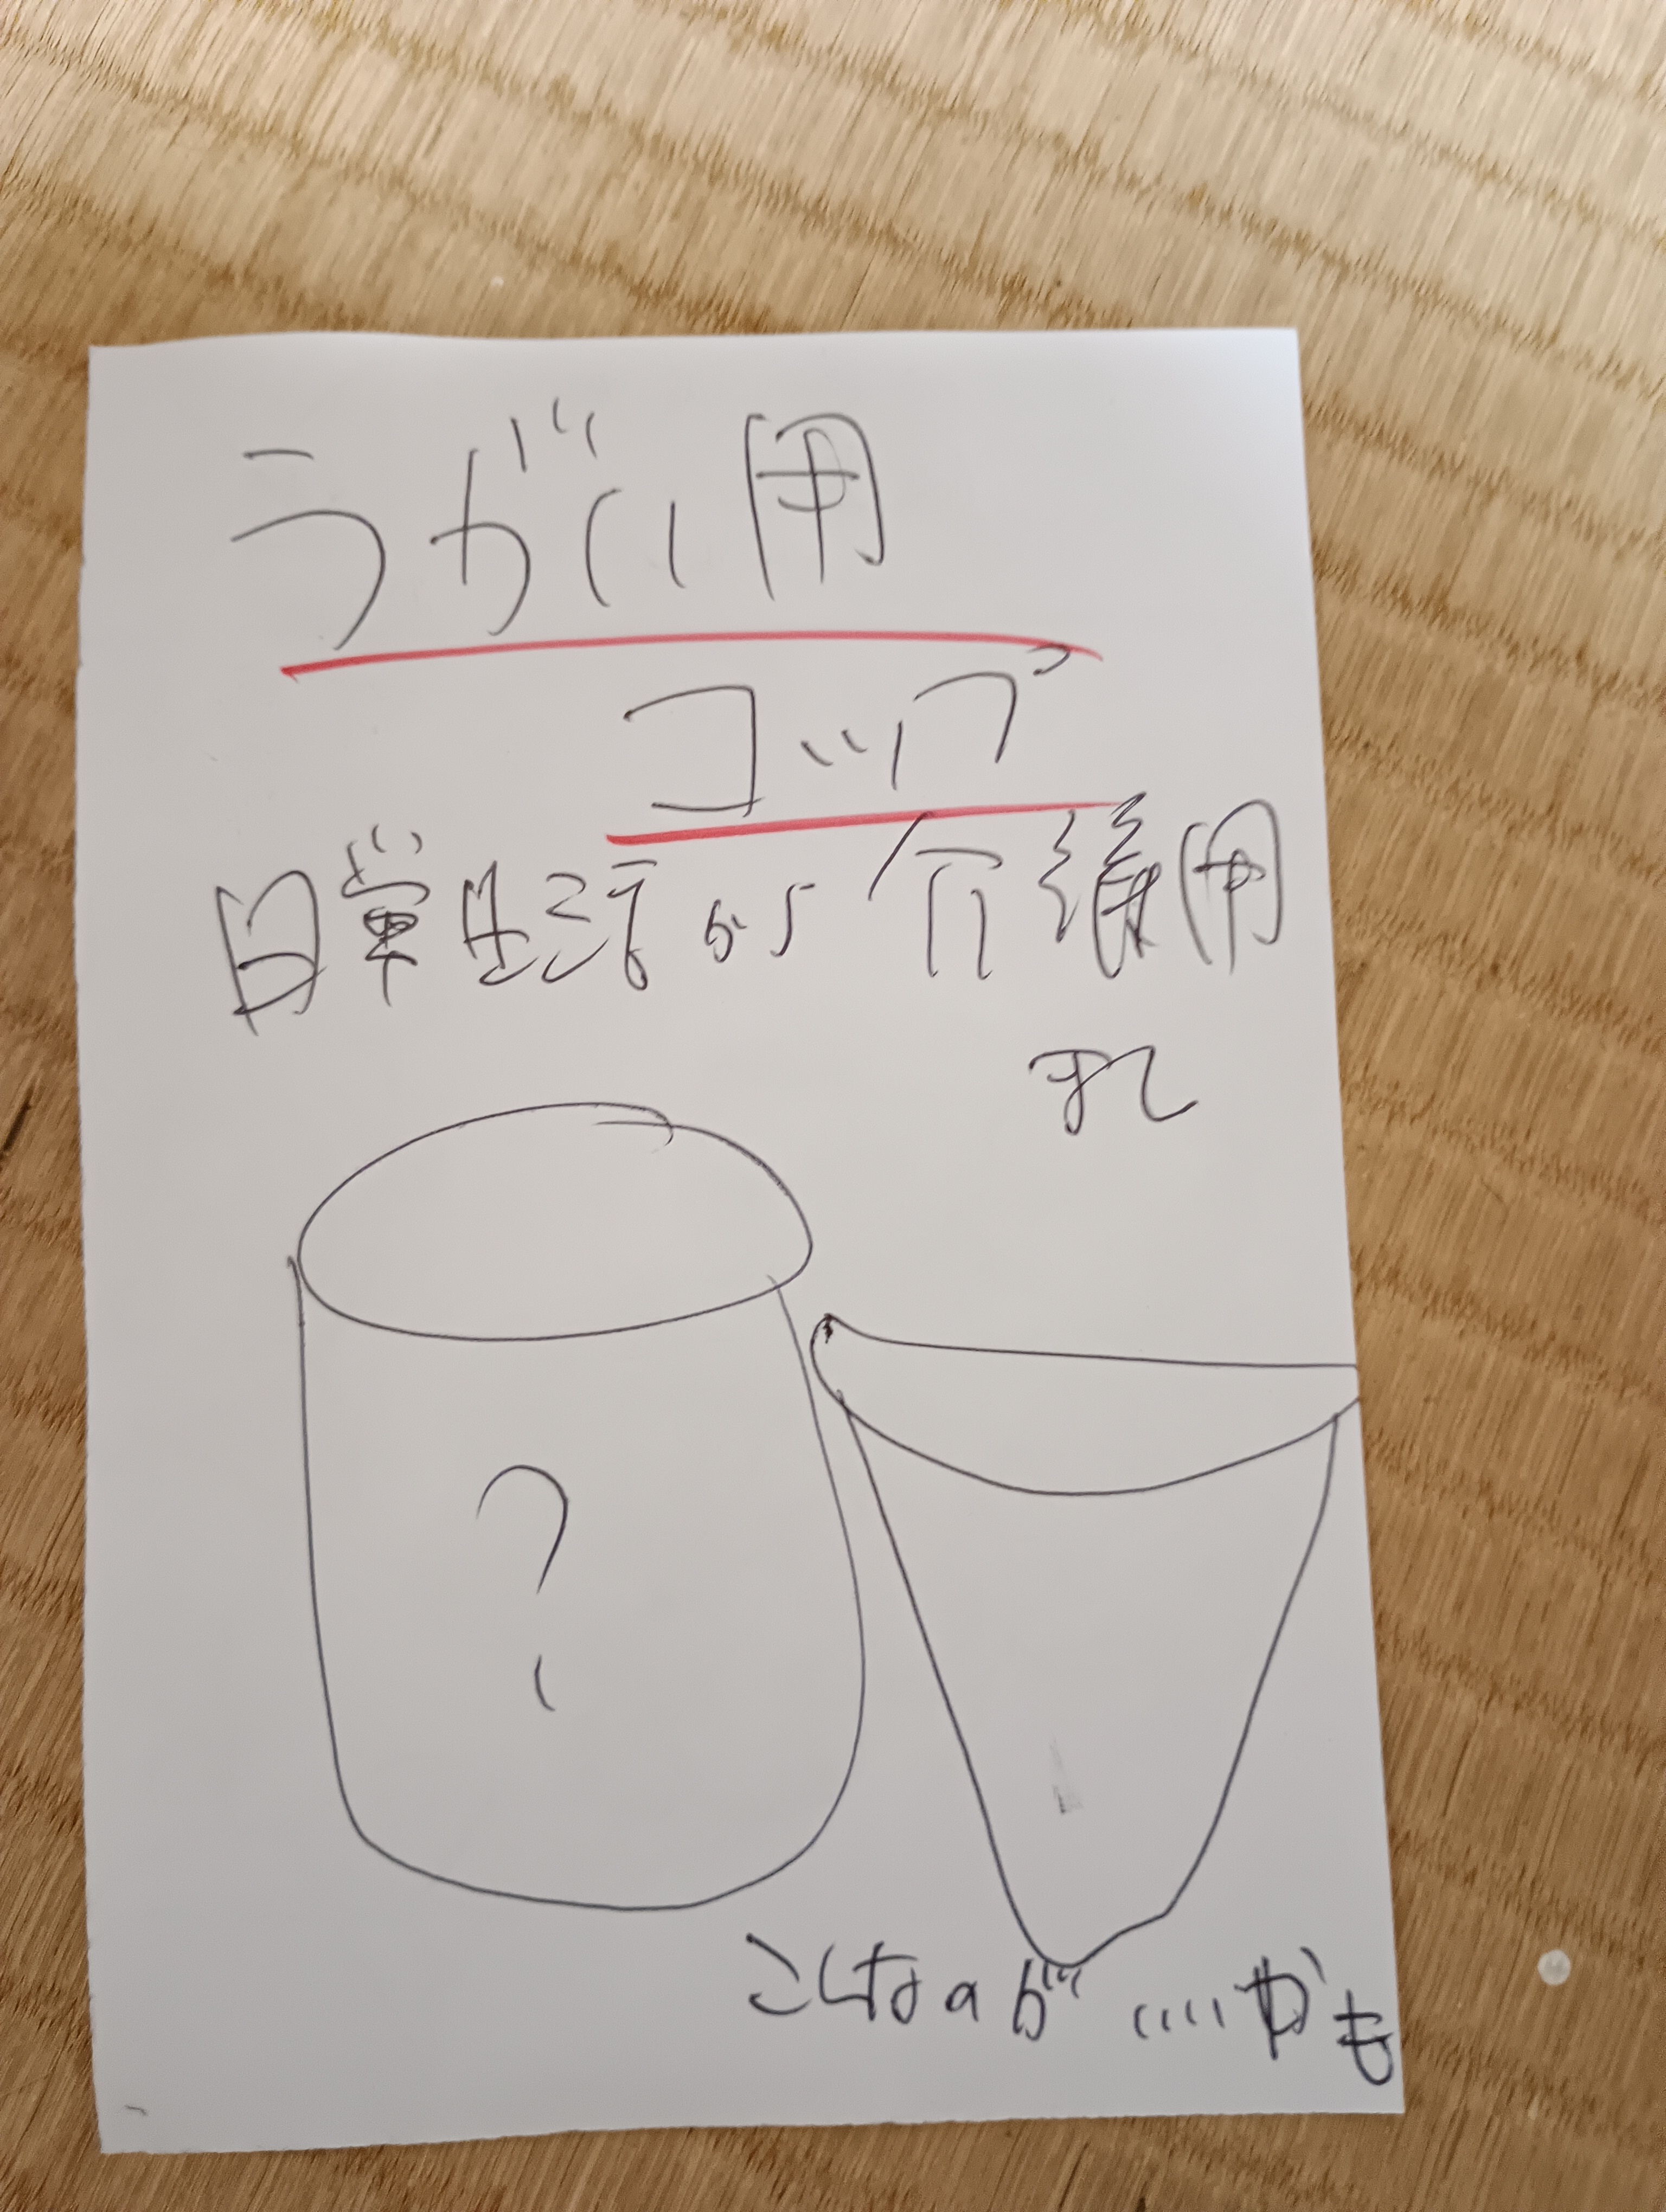 うがい用
コップ
日常生活から介護用
まで
?
こんなのが....かも